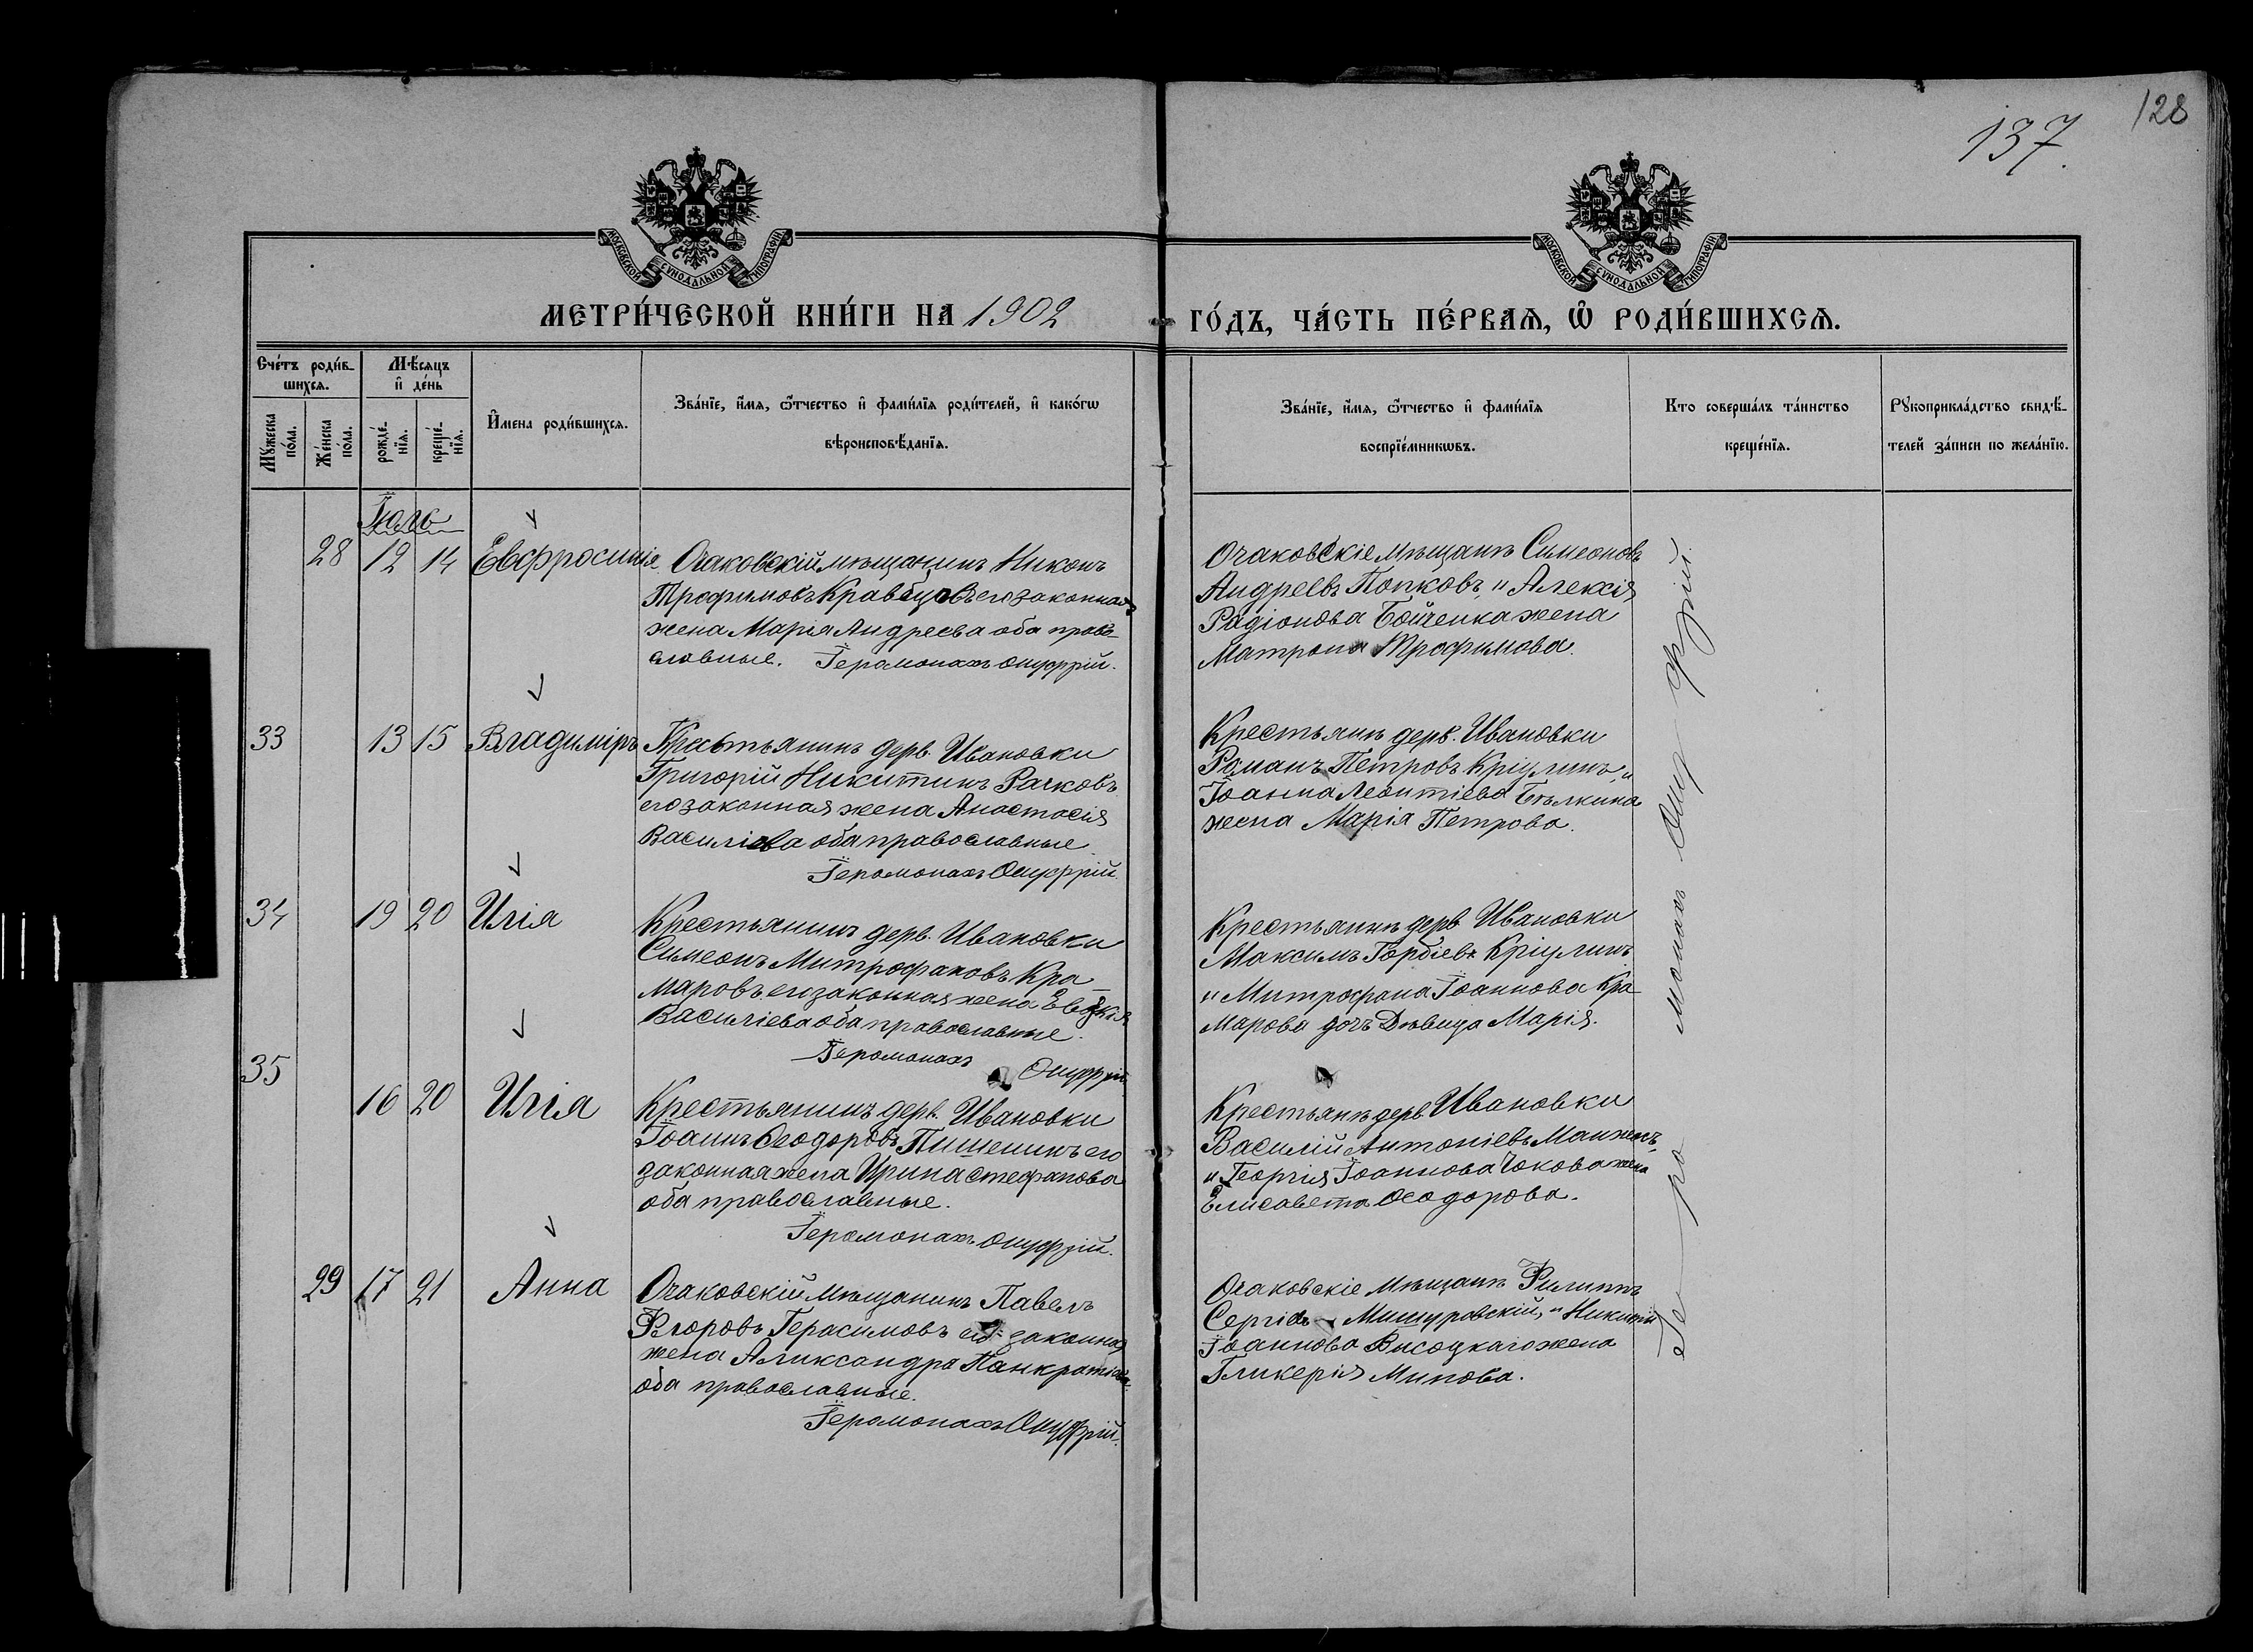 128
137.
МОСКОВСКОЙ СУНОДАЛЬНОЙ ТИПОГРАФІИ
МОСКОВСКОЙ СУНОДАЛЬНОЙ ТИПОГРАФІИ
МЕТРИ́ЧЕСКОЙ КНИ́ГИ НА 1902
ГО́ДЪ, ЧА́СТЬ ПЕ́РВАѦ, Ѡ҆ РОДИ́ВШИХСѦ.
Сче́тъ роди́в-
шихсѧ.
Мѣ́сѧцъ
и҆ де́нь
Мꙋ́жеска
по́ла.
Же́нска
по́ла.
рожде́-
нїѧ.
креще́-
нїѧ.
И҆́мена роди́вшихсѧ.
Зва́нїе, и҆́мѧ, ѻ҆́тчество и҆ фами́лїѧ роди́телей, и҆ како́гѡ
вѣроисповѣ́данїѧ.
Зва́нїе, и҆́мѧ, ѻ҆́тчество и҆ фами́лїѧ
воспрїе́мникѡвъ.
Кто соверша́лъ та́инство
креще́нїѧ.
Рꙋкоприкла́дство свидѣ́-
телей за́писи по жела́нїю.
Іюль
28 12 14 Евфросинія
Очаковскій мѣщанинъ Никонъ
Трофимовъ Кравцовъ его законная
жена Марія Андреева оба право-
славные. Іеромонахъ Онуфрій.
Очаковскіе мѣщане Симеонъ
Андреевъ Попковъ, и Алексія
Радіонова Бойченка жена
Матрона Трофимова.
33 13 15 Владиміръ
Крестьянинъ дерв. Ивановки
Григорій Никитинъ Рачковъ
его законная жена Анастасія
Василіева оба православные
Іеромонахъ Онуфрій
Крестьяне дерв. Ивановки
Романъ Петровъ Кріулинъ, и
Іоанна Леонтіева Бѣлкина
жена Марія Петрова.
34 19 20 Илія
Крестьянинъ дерв. Ивановки
Симеонъ Митрофановъ Кра-
маровъ его законная жена Евдокія
Василіева оба православные.
Іеромонахъ Онуфрій
Крестьяне дерв Ивановки
Максимъ Кріулинъ
и Митрофана Іоаннова Кра-
марова дочь Дѣвица Марія.
35 16 20 Илія
Крестьянинъ дерв. Ивановки
Іоаннъ Ѳеодоровъ Пишенинъ его
законная жена Ирина Стефанова
оба православные.
Іеромонахъ Онуфрій.
Крестьяне дерв. Ивановки
Василій Антоніевъ
и Георгія Іоаннова Чокова жена
Елисавета Ѳеодорова.
29 17 21 Анна
Очаковскій мѣщанинъ Павелъ
Герасимовъ его законная
жена Александра Панкратіева
оба православные.
Іеромонахъ Онуфрій.
Очаковскіе мѣщане Филиппъ
Мишуровскій, и Никитій
Іоаннова Высоцкаго жена
Гликерія Минова.
Іеромонахъ Онуфрій.